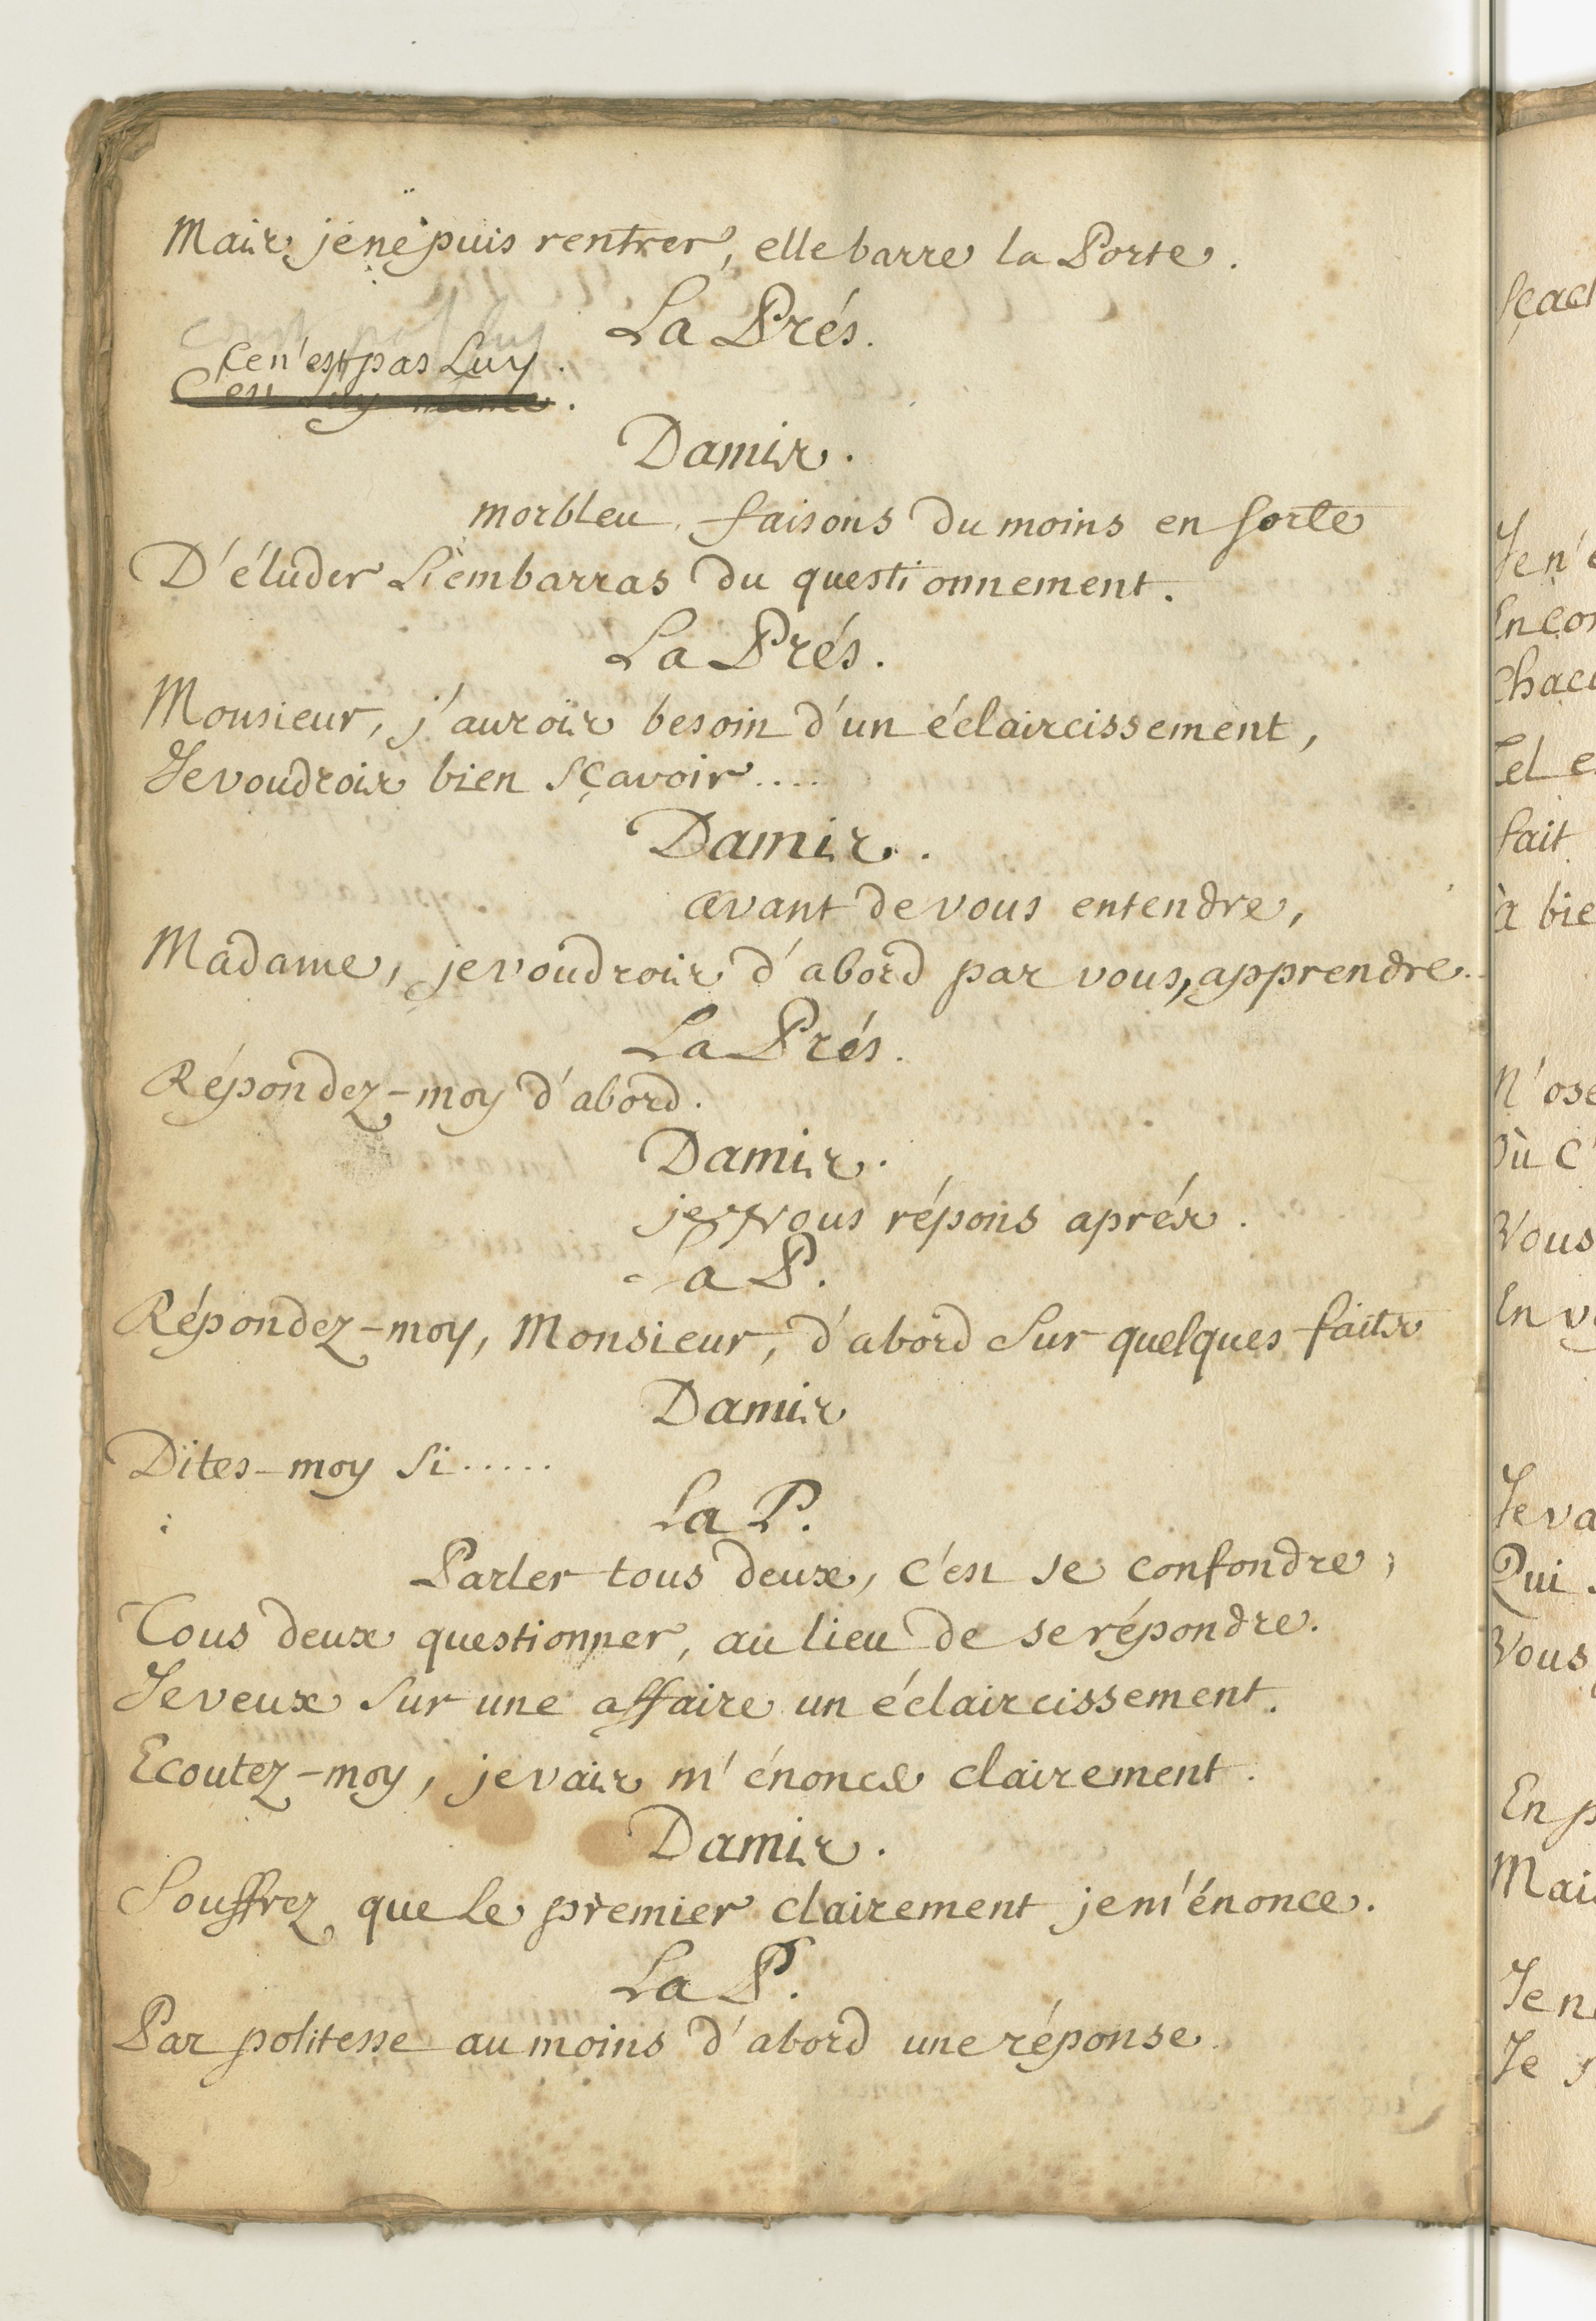 Mais je ne puis rentrer, elle barre la Porte.
La Prés.
Ce n'est pas Luy.
C'est Luy même.
Damis.
morbleu, faisons du moins en sorte
D'éluder L'embarras du questionnement.
La Prés.
Monsieur, j'aurois besoin d'un éclaircissement,
Je voudrois bien sçavoir....
Damis.
avant de vous entendre,
Madame, je voudrois d'abord par vous, apprendre..
La Prés.
Répondez-moy d'abord.
Damis.
je vous répons après.
La P.
Répondez-moy, Monsieur, d'abord sur quelques faits
Damis
Dites-moy si.....
La P.
Parler tous deux, c'est se confondre;
Tous deux questionner, au lieu de se répondre.
Je veux sur une affaire un éclaircissement.
Ecoutez-moy, je vais m'énoncer clairement.
Damis.
Souffrez que le premier clairement je m'énonce.
La P.
Par politesse au moins d'abord une réponse.
sçac
Je n'e
Encor
Chac
Tel e
fait
à bie
N'ose
Où C'
Vous
En v
Je va
Qui
Vous
En p
Mai
Je n
Je